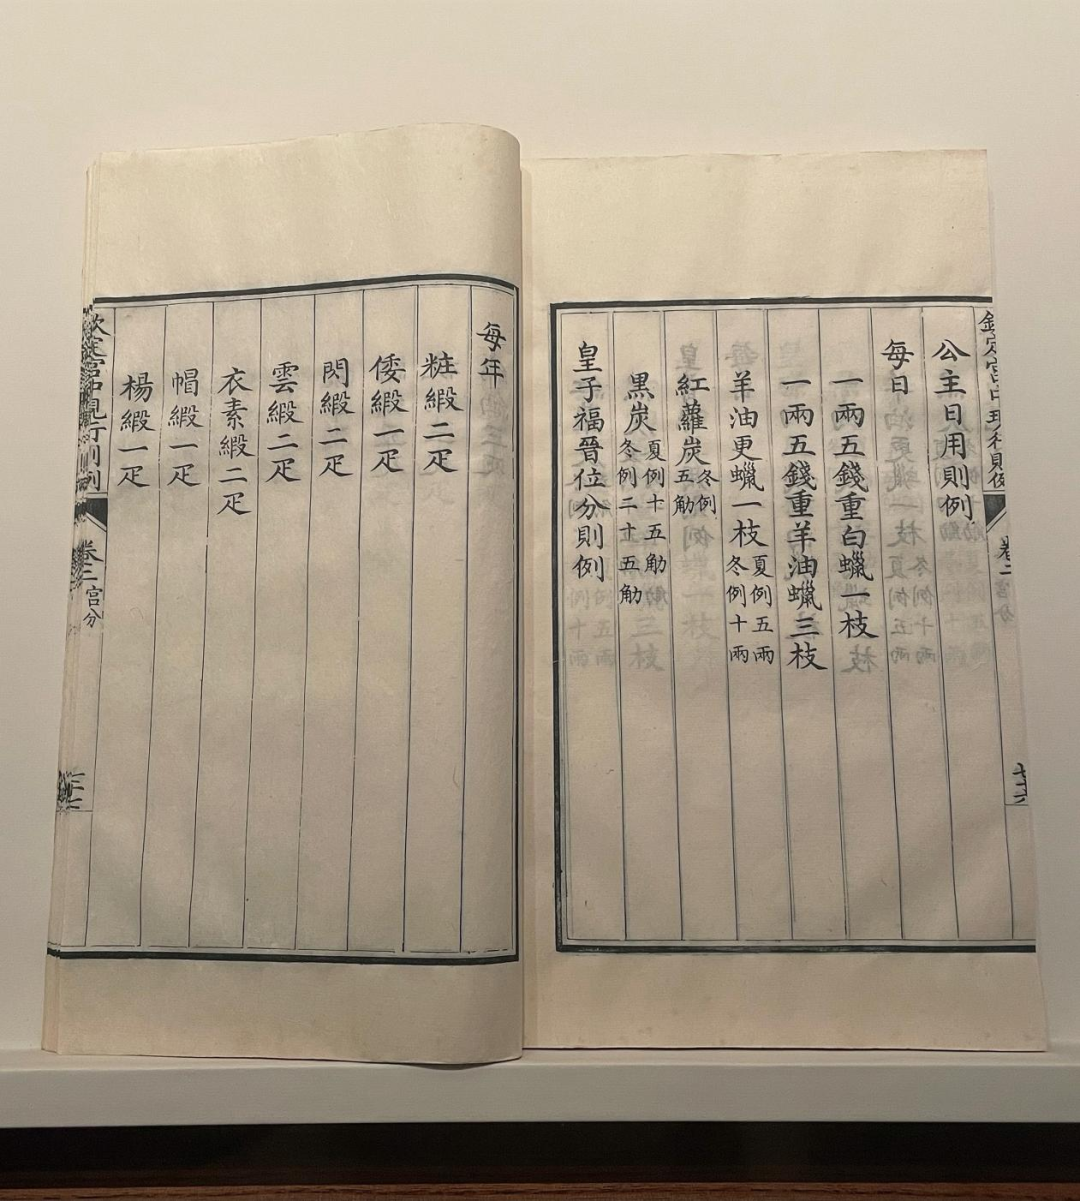 欽定宮中現行則例
卷二 宮分
公主日用則例
每日
一兩五錢重白蠟一枝
一兩五錢重羊油蠟三枝
羊油更蠟一枝夏例五兩冬例十兩
紅蘿炭冬例五觔
黑炭夏例十五觔冬例二十五觔
皇子福晉位分則例
每年
粧緞二疋
倭緞一疋
閃緞二疋
雲緞二疋
衣素緞二疋
帽緞一疋
楊緞一疋
欽定宮中現行則例
卷二 宮分